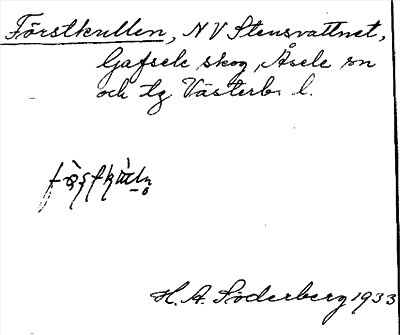 Förstkullen, NV Stensvattnet,
Gafsele skog, Åsele sn
och tg Västerb. l.
H. A. Söderberg 1933